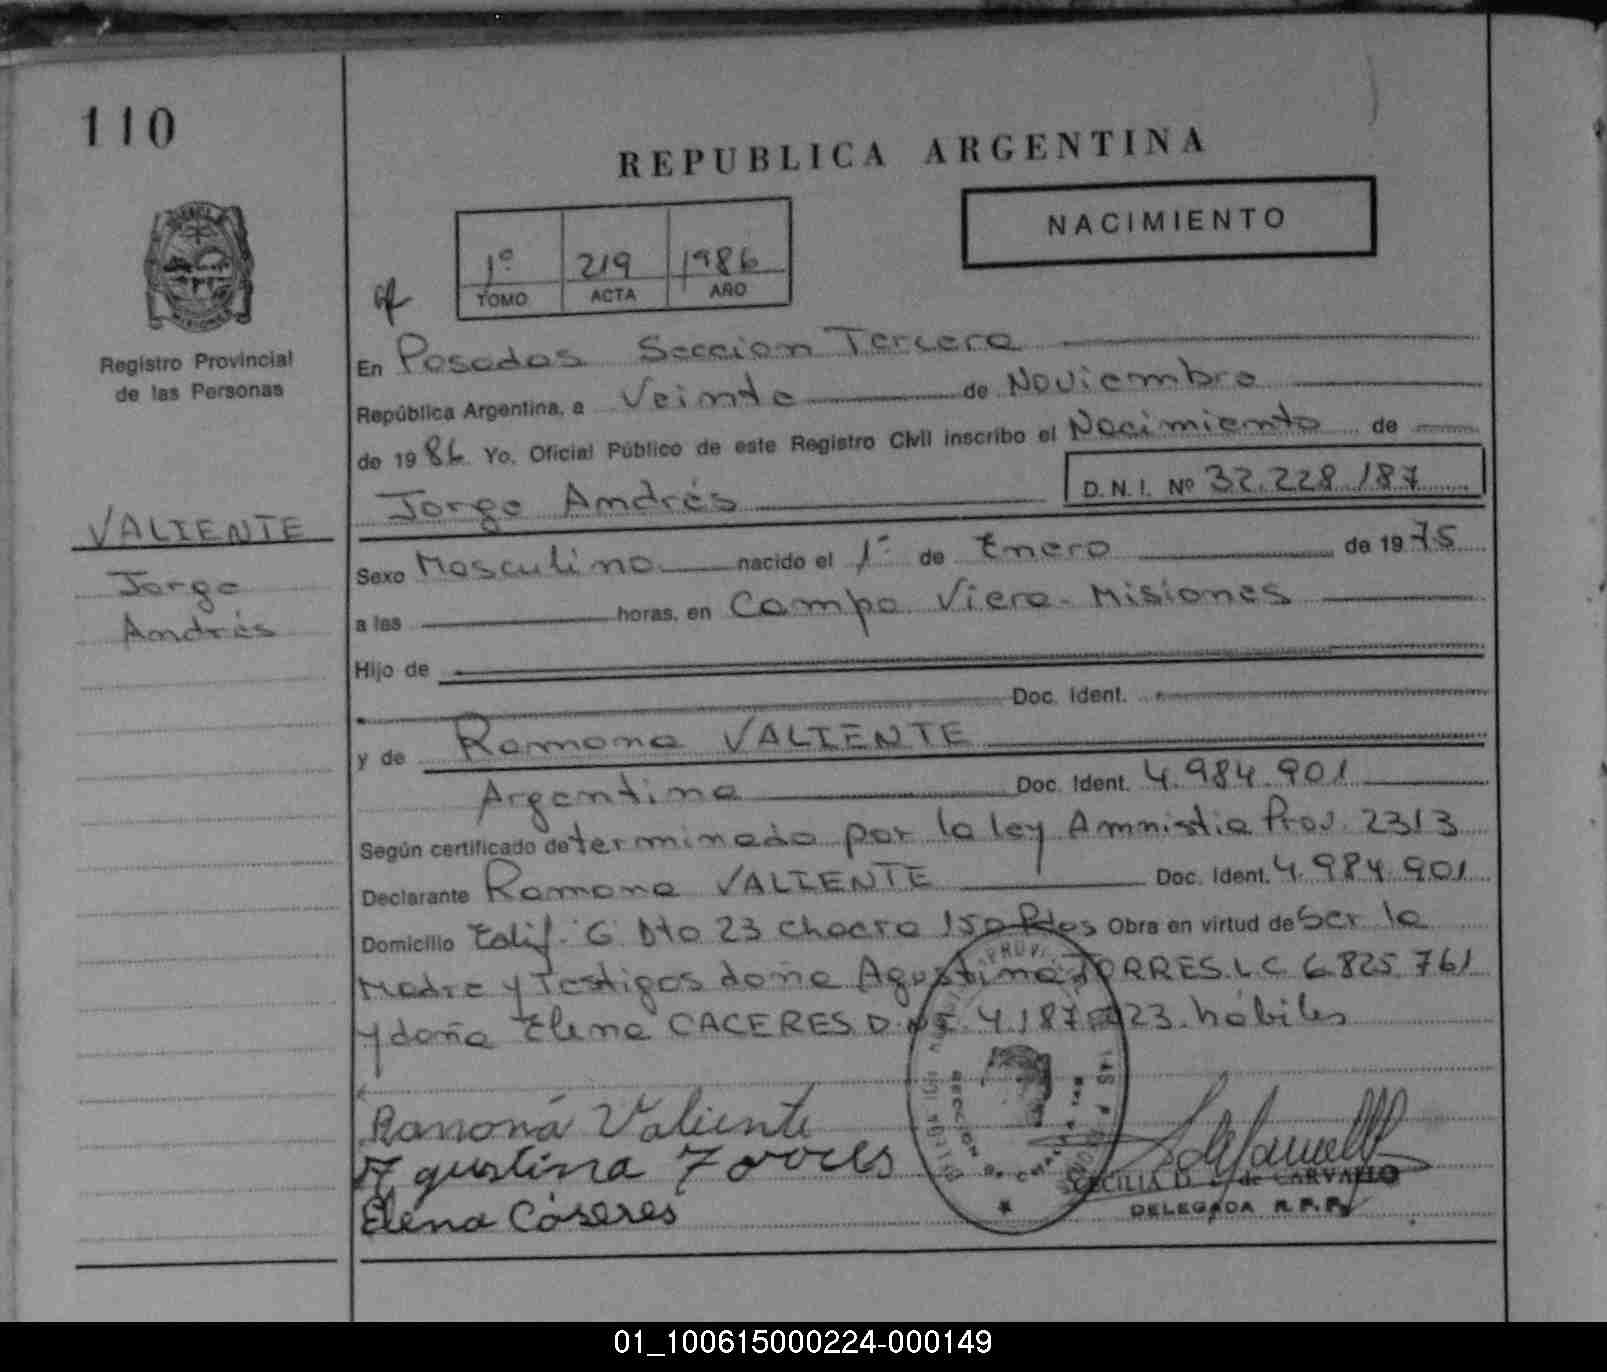 110
REPUBLICA ARGENTINA
NACIMIENTO
1º 219 1986
TOMO ACTA AÑO
Registro Provincial
de las Personas
En Posadas Seccion Tercera
República Argentina, a Veinte de Noviembre
de 1986 Yo, Oficial Público de este Registro Civil inscribo el Nacimiento de
Jorge Andrés D.N.I. Nº 32.228.187
VALIENTE
Jorge
Andrés
Sexo Masculino nacido el 1º de Enero de 1975
a las horas, en Campo Viera - Misiones
Hijo de
Doc. Ident.
y de Ramona VALIENTE
Argentina Doc. Ident. 4.984.901
Según certificado determinado por la ley Amnistia Prov. 2313
Declarante Ramona VALIENTE Doc. Ident. 4.984.901
Domicilio Edif. G Dto 23 chacra 150 Pdas Obra en virtud de Ser la
Madre y Testigos doña Agustina TORRES L.C. 6.825.761
y doña Elena CACERES D.N.I. 4.187. 23. hábiles
Ramona Valiente
Agustina Torres
Elena Cáseres
CECILIA D. de CARVALLO
DELEGADA R.P.P.
01_100615000224-000149